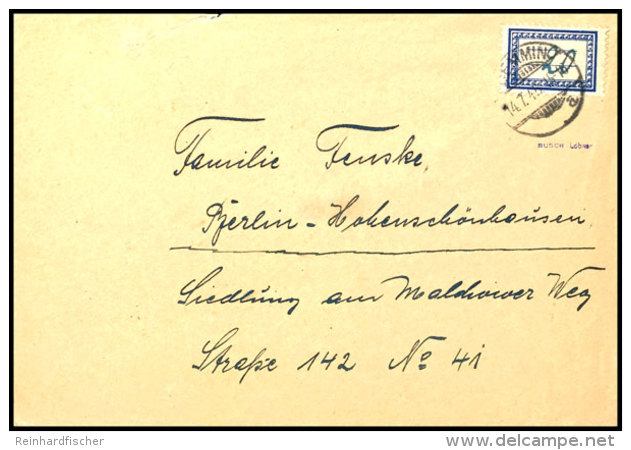 14.7.4
BUSCH
Familie Fenske,
Berlin-Hohenschönhausen
Siedlung am Malchower Weg
Straße 142 No 41
Reinhardfischer
delcampe.net